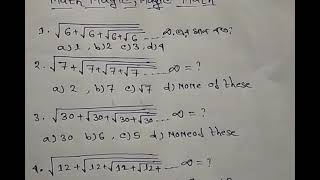 Math Magic, Magic Math
1. √6+√6+√6+√6 ...... ∞ এর মান কত?
a) 1, b) 2 c) 3, d) 4
2. √7+√7+√7+√7 ....... ∞ = ?
a) 2, b) 7 c) √7 d) none of these
3. √30+√30+√30+√30 .... ∞ = ?
a) 30 b) 6, c) 5 d) none of these
4. √12+√12+√12+√12+ ...... ∞ = ?